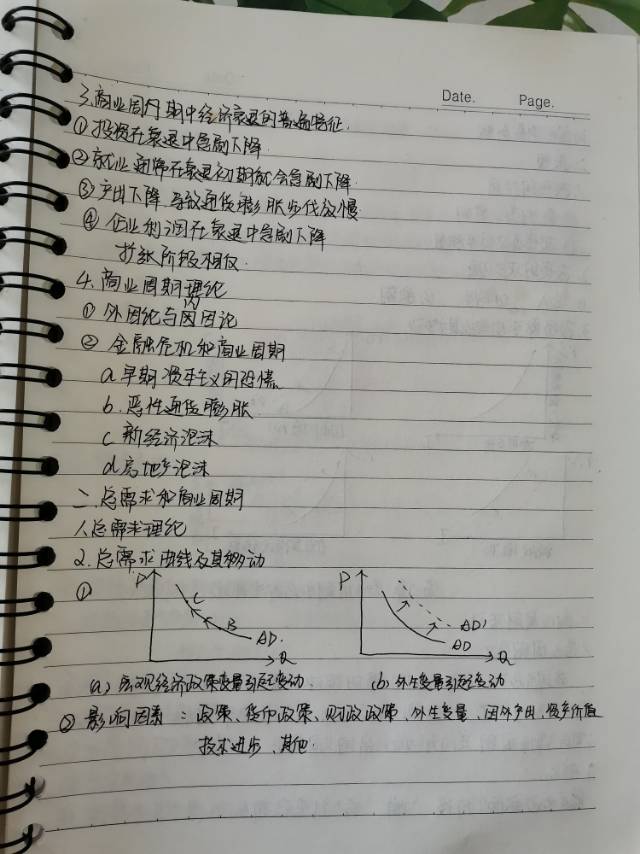 Date. Page.
3.商业周期中经济衰退的普遍特征.
①投资在衰退中急剧下降.
②就业通常在衰退初期就会急剧下降.
③产出下降 导致通货膨胀步伐放慢
④企业利润在衰退中急剧下降
扩张阶段相反.
4.商业周期理论
①外因论与内因论
②金融危机和商业周期
a早期资本主义的恐慌
b.恶性通货膨胀.
c新经济泡沫
d房地产泡沫
二.总需求和商业周期
1.总需求理论
2.总需求曲线及其移动
①
P C B AD. Q
P AD' AD Q
(a)宏观经济政策变量引起变动.
(b)外生变量引起变动
②影响因素:政策、货币政策、财政政策、外生变量、国外产出、资产价值
技术进步、其他.